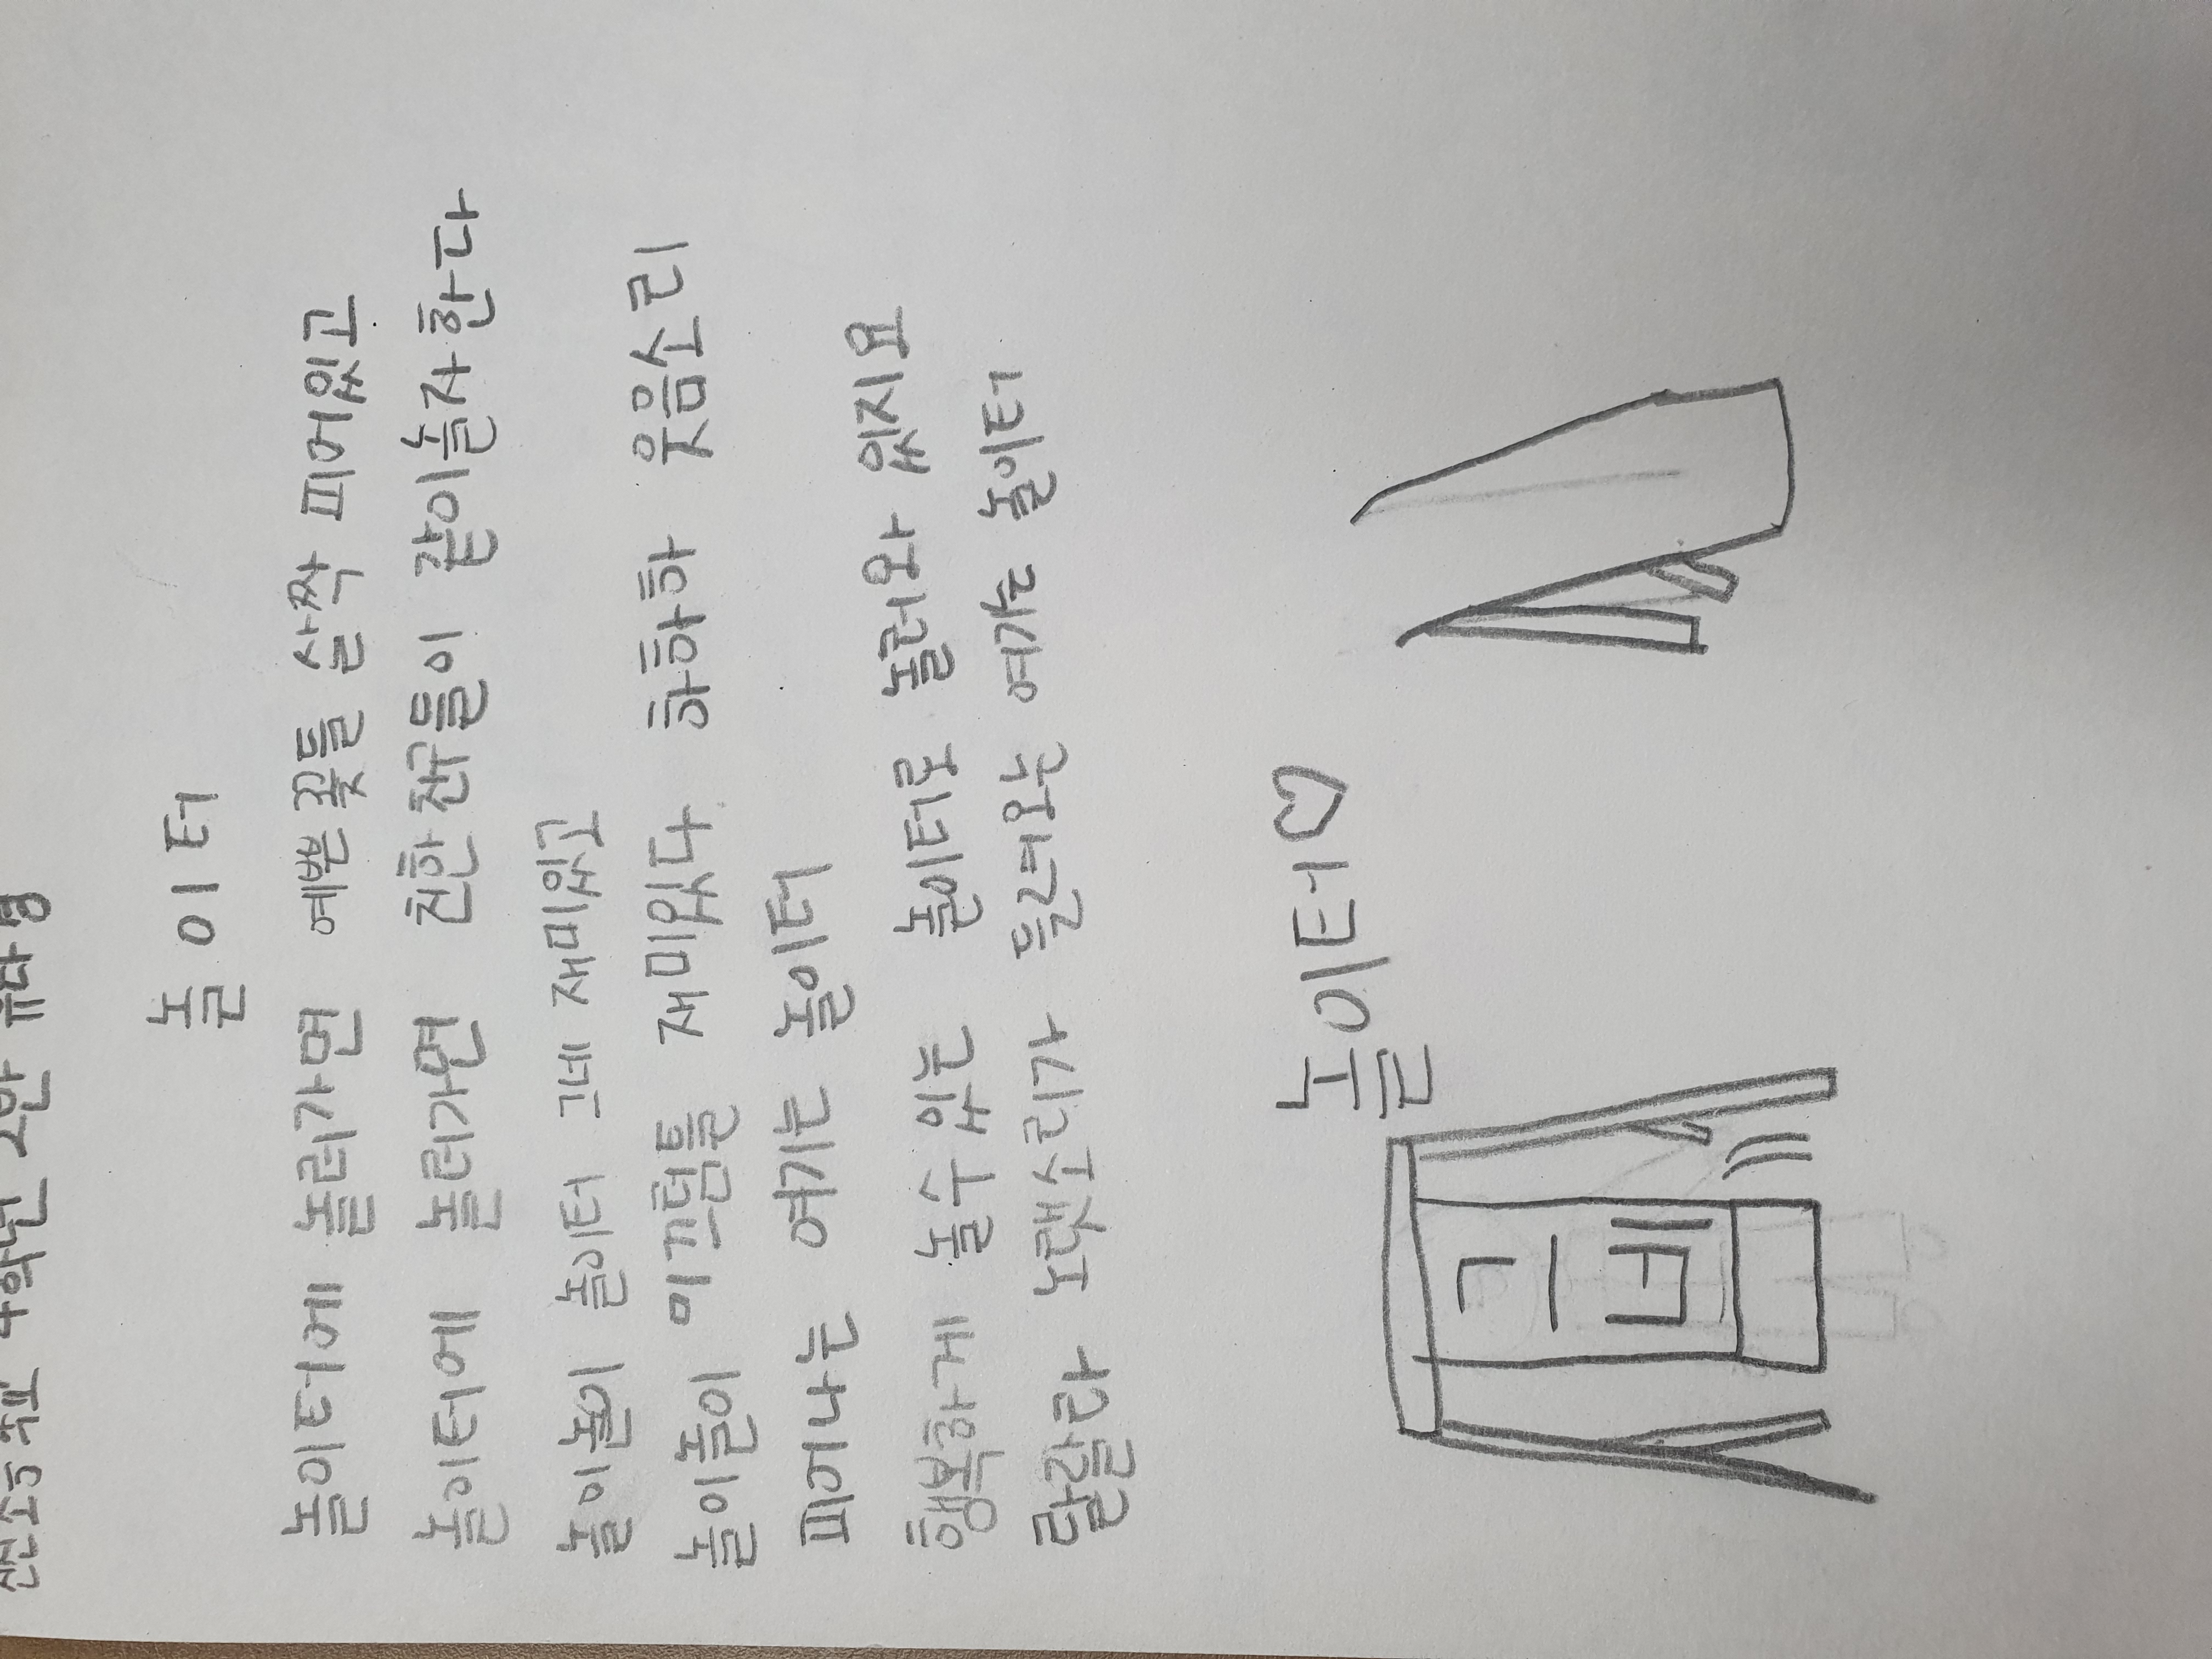 4학년 2반
놀이터
놀이터에 놀러가면 예쁜 꽃들 살짝 피어있고
놀이터에 놀러가면 친한친구들이 같이놀자한다
놀이놀이 놀이터 그네 재미있고
놀이놀이 미끄럼틀 재미있다 하하하 웃음소리
피어나는 여기는 놀이터
행복하게 놀수 있는 놀이터로 놀러와 있지요
랄랄라 노랫소리가 들려오는 여기는 놀이터
놀이터♡
그네